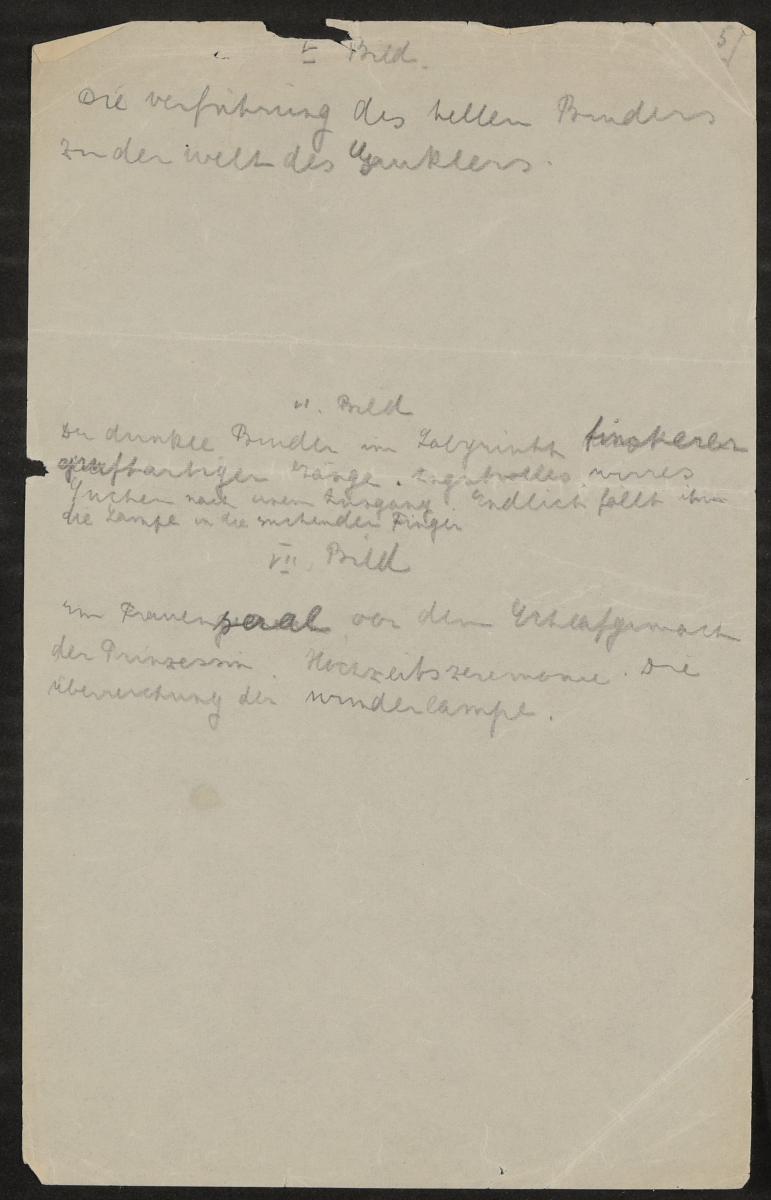 5
V Bild.
Die verführung des hellen Bruders
zu der welt des Gauklers.
VI. Bild
Der dunkle Bruder im Labyrinth finsterer
gruftartiger Gänge. Angstvolles wirres
Suchen nach einem Ausgang. Endlich fällt ihm
die Lampe in die suchenden Finger
VII. Bild
Ein Frauensaal vor dem Schlafgemach
der Prinzessin Hochzeitszeremonie. Die
überreichung der wunderlampe.